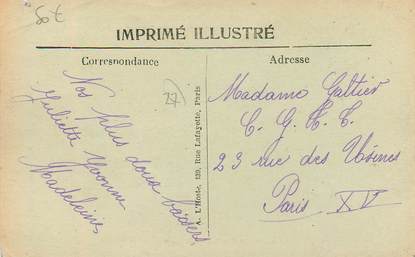 50€
IMPRIMÉ ILLUSTRÉ
Correspondance
Adresse
27
Nos plus doux baisers
Juliette Yvonne
Madeleine
A. L'Hoste, 139, Rue Lafayette, Paris
Madame Galtier
C. G. T.
23 rue des Usines
Paris XV